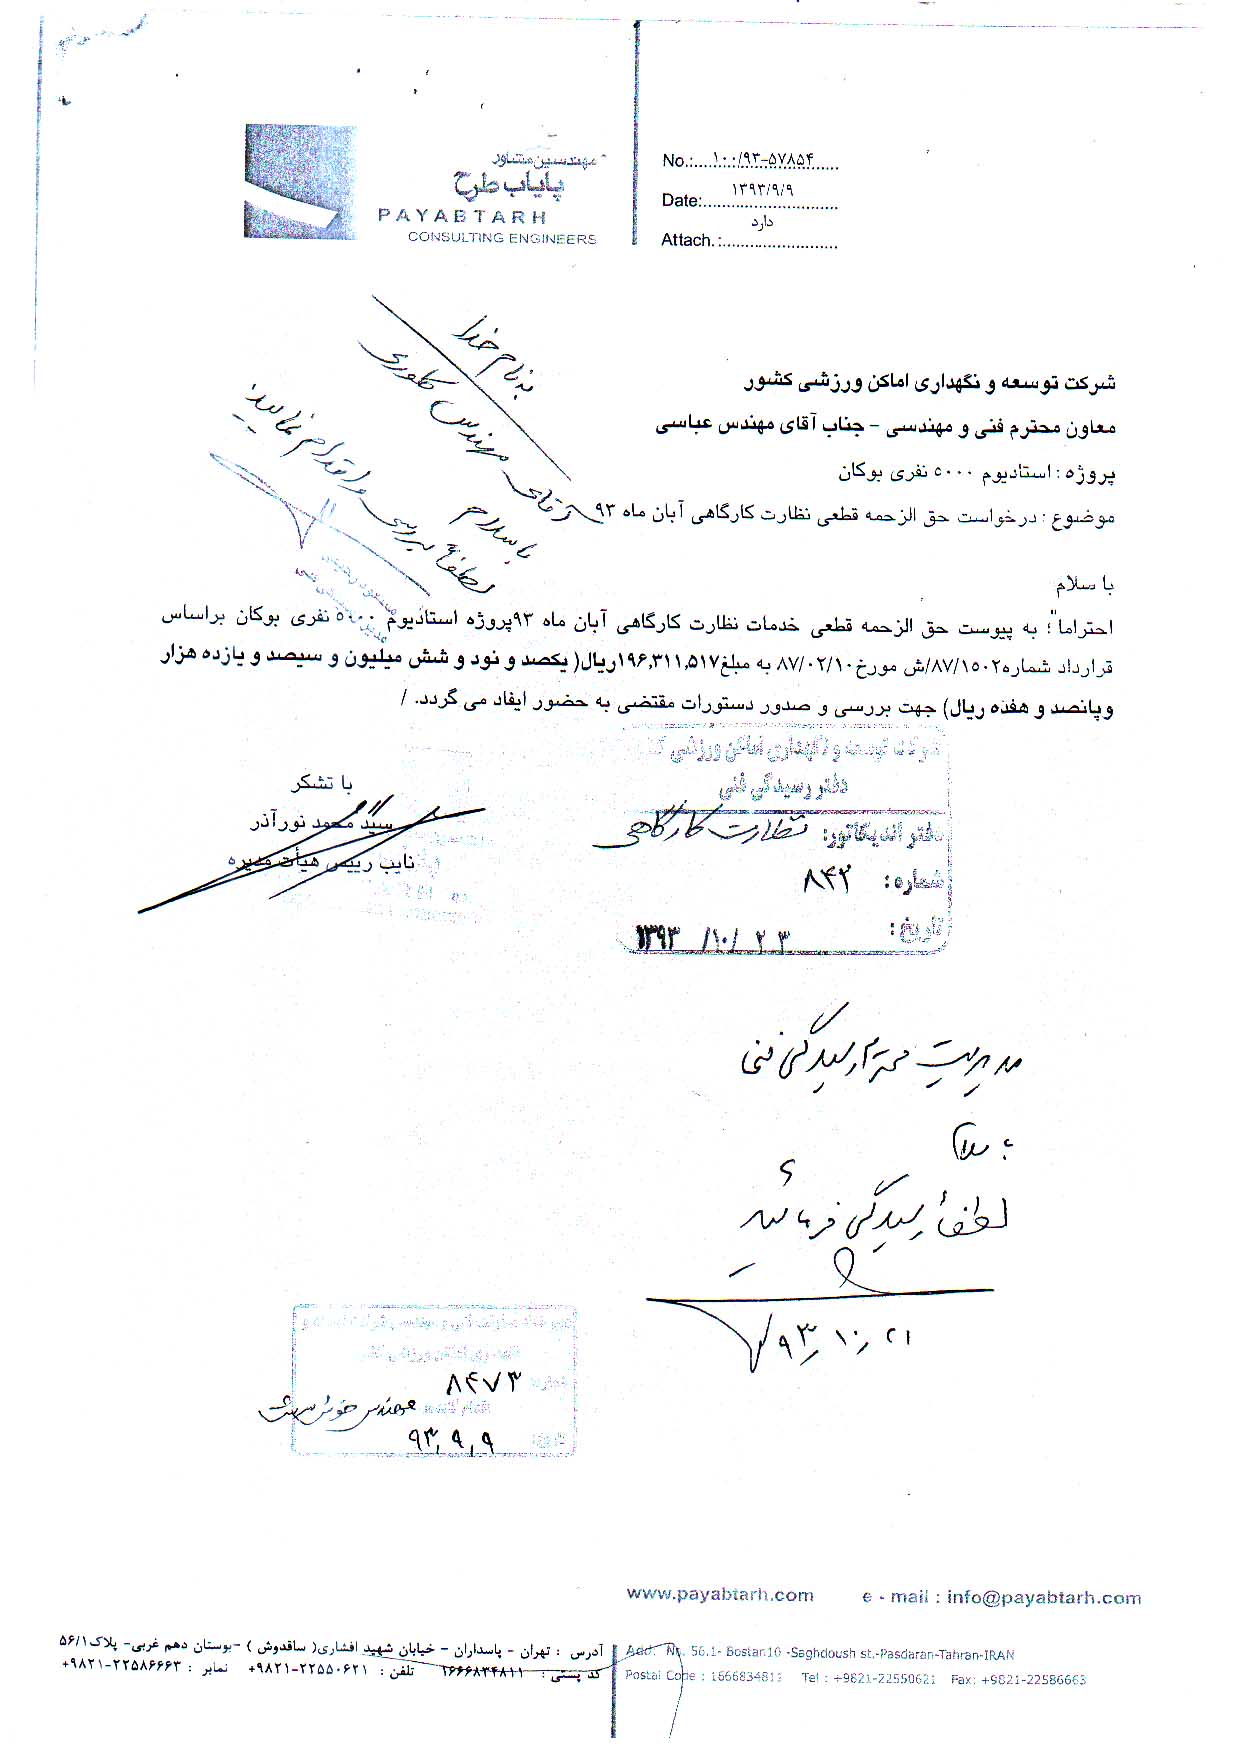 مهندسین مشاور
پایاب طرح
PAYABTARH
CONSULTING ENGINEERS
No.:....۱۰۰/۹۳-۵۷۸۵۴.....
۱۳۹۳/۹/۹
Date:...........................
دارد
Attach.:..........................
به نام خدا
آقای مهندس
با سلام
لطفاً بررسی و اقدام نمایید
شرکت توسعه و نگهداری اماکن ورزشی کشور
معاون محترم فنی و مهندسی - جناب آقای مهندس عباسی
پروژه : استادیوم ۵۰۰۰ نفری بوکان
موضوع : درخواست حق الزحمه قطعی نظارت کارگاهی آبان ماه ۹۳
با سلام
احتراما"؛ به پیوست حق الزحمه قطعی خدمات نظارت کارگاهی آبان ماه ۹۳پروژه استادیوم ۵۰۰۰ نفری بوکان براساس
قرارداد شماره۸۷/۱۵۰۲/ش مورخ۸۷/۰۲/۱۰ به مبلغ۱۹۶,۳۱۱,۵۱۷ریال( یکصد و نود و شش میلیون و سیصد و یازده هزار
وپانصد و هفده ریال) جهت بررسی و صدور دستورات مقتضی به حضور ایفاد می گردد. /
با تشکر
سید محمد نورآذر
نایب رییس هیأت مدیره
شرکت توسعه و نگهداری اماکن ورزشی
دفتر رسیدگی فنی
دفتر اندیکاتور: نظارت کارگاهی
شماره: ۸۴۲
تاریخ: ۱۳۹۳/۱۰/۲۳
مدیریت محترم رسیدگی فنی
با سلام
لطفاً رسیدگی فرمائید
۹۳,۱۰,۲۱
۸۴۷۳
مهندس
۹۳,۹,۹
www.payabtarh.com e - mail : info@payabtarh.com
آدرس : تهران - پاسداران - خیابان شهید افشاری( ساقدوش ) -بوستان دهم غربی- پلاک۵۶/۱
کد پستی : ۱۶۶۶۸۳۴۸۱۱ تلفن : ۲۲۵۵۰۶۲۱-۹۸۲۱+ نمابر : ۲۲۵۸۶۶۶۳-۹۸۲۱+
Add: No. 56.1- Bostan10 -Saghdoush st.-Pasdaran-Tahran-IRAN
Postal Code : 1666834811 Tel : +9821-22550621 Fax: +9821-22586663